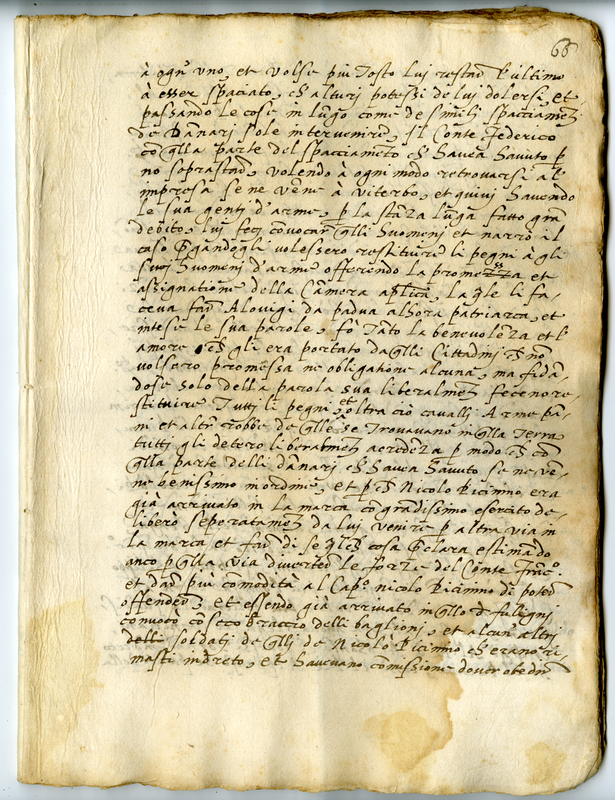 66
à ogn' uno, et volse piu tosto lui restar l'ultimo
à esser spaciato, ch'altuji potessi de lui dolersi, et
passando le cose in lũgo come de simili spacciamẽti
de danari sole intervenire, Il Conte Federico
cõ q̃lla parte del spacciamẽto ch' havea havuto p̃
nõ soprastar, volendo à ogni modo retrovarse al'
impresa se ne vẽne à Viterbo, et quivi havendo
le sua genti d'arme, p̃ la stãza lũga fatto grã
debito, lui feci cõvocar q̃lli huomeni et narrò il
caso p̃gandogli volessero restituire li pegni à gli
suoi huomeni d'arme offerendo la promessa et
assignatione della Camera aplica, la q̃le li fa-
ceva far Alovigi da padua alhora patriarca, et
intese le sua parole, fò tãto la benevolẽza et l'
amore ch' gli era portato da q̃lli Cittadini ch' nõ
volsero promessa ne obligatione alcuna, ma fidã-
dose solo della parola sua liberalmẽte fecero re-
stituire tutti li pegni, et oltra ciò cavalli Arme pã-
ni et altre robbe de q̃lle se trovavano in q̃lla terra
tutti gli detero liberalmẽte à credẽza p̃ modo ch' cõ
q̃lla parte delli danari ch' havea havuto se ne vẽ-
ne benissimo in ordine, et p̃ch' Nicolo Picinino era
già arrivato in la marca cõ grãdissimo esercito de-
liberò seperatamẽte da lui venire p̃ altra via in
la marca et far di se q̃lch' cosa p̃clara estimãdo
anco p̃ q̃lla via divertere le forze del Conte Frãc.º
et dar più comodità al Cap.º nicolo Picinino di poter
offendere, et essendo già arrivato in q̃llo d' fuligni
convocò cõ seco braccio delli baglioni, et alcuni altri
delli soldati de q̃lli de Nicolò Picinino ch' erano ri-
masti indreto, et havevano cõmissione dover obedire